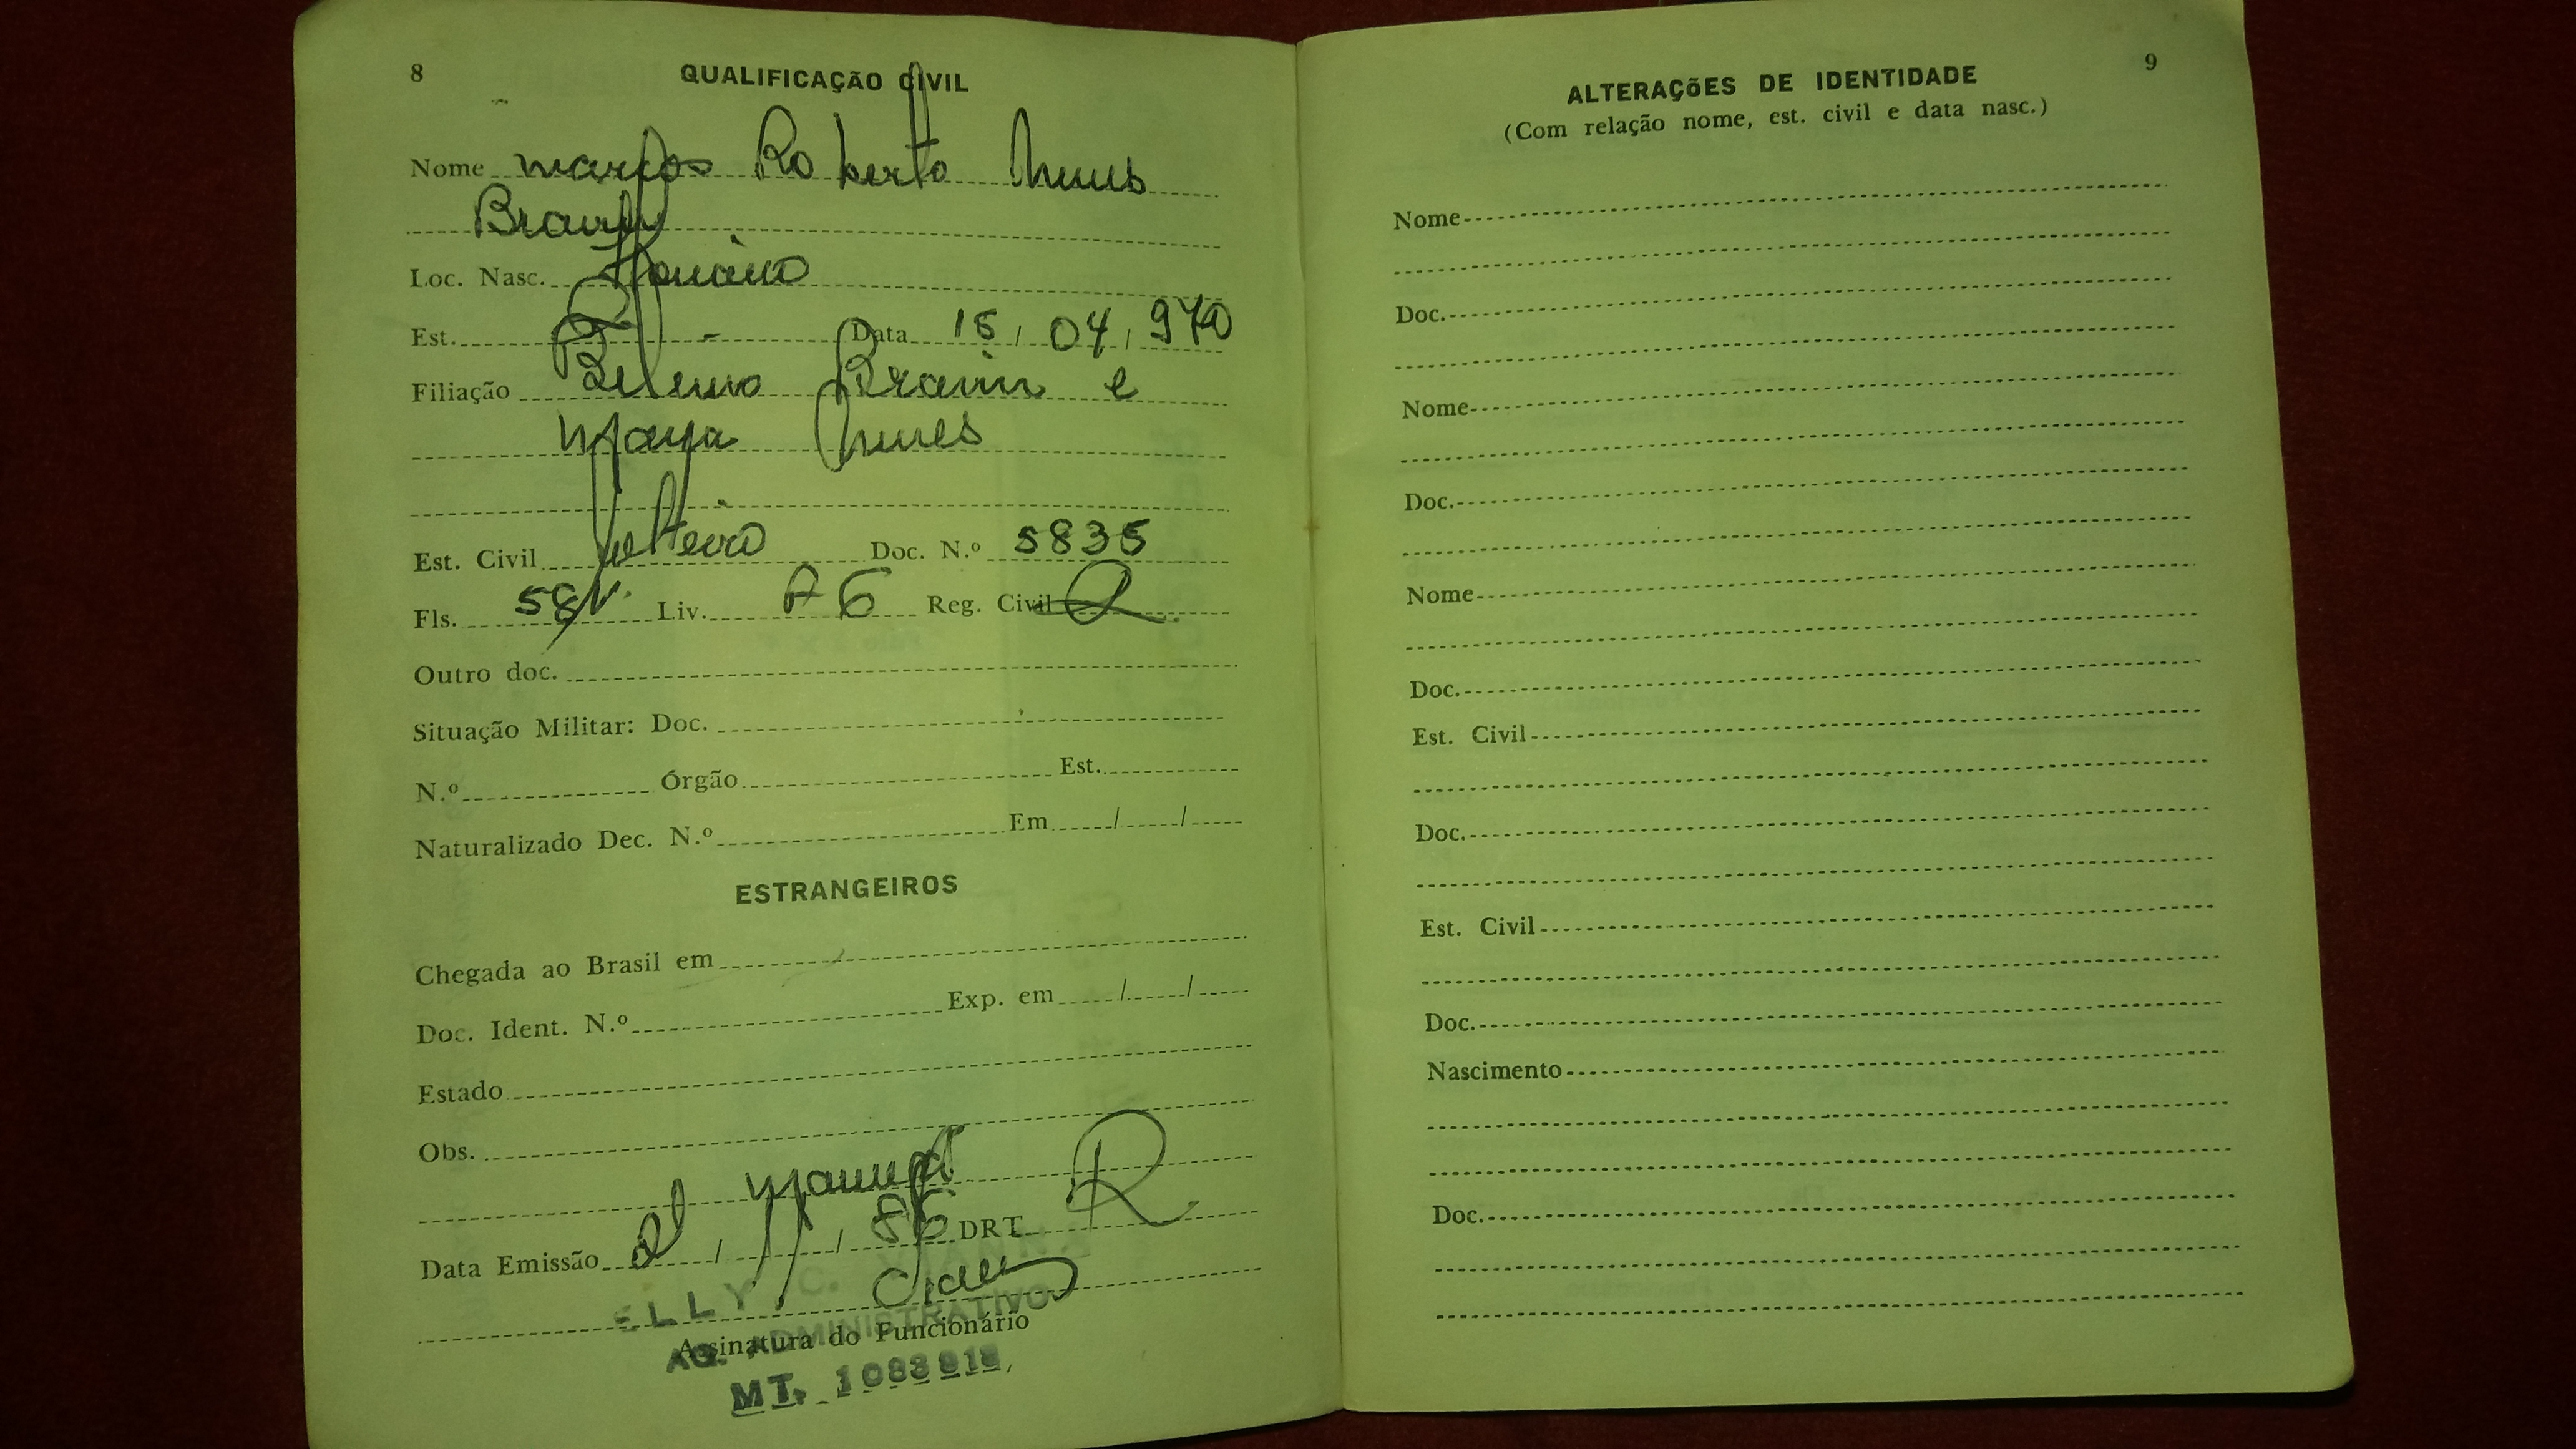 8
QUALIFICAÇÃO CIVIL
Nome Marcos Roberto Nunes
Loc. Nasc.
Est. - Data 15 / 04 / 970
Filiação e
Nunes
Est. Civil Solteiro Doc. N.º 5835
Fls. 58V. Liv. A6 Reg. Civil
Outro doc.
Situação Militar: Doc.
N.º Órgão Est.
Naturalizado Dec. N.º Em / /
ESTRANGEIROS
Chegada ao Brasil em
Doc. Ident. N.º Exp. em / /
Estado
Obs.
Data Emissão / / 86 DRT
ELLY C.
Assinatura do Funcionário
AG. ADMINISTRATIVO
MT. 1083818
9
ALTERAÇÕES DE IDENTIDADE
(Com relação nome, est. civil e data nasc.)
Nome
Doc.
Nome
Doc.
Nome
Doc.
Est. Civil
Doc.
Est. Civil
Doc.
Nascimento
Doc.